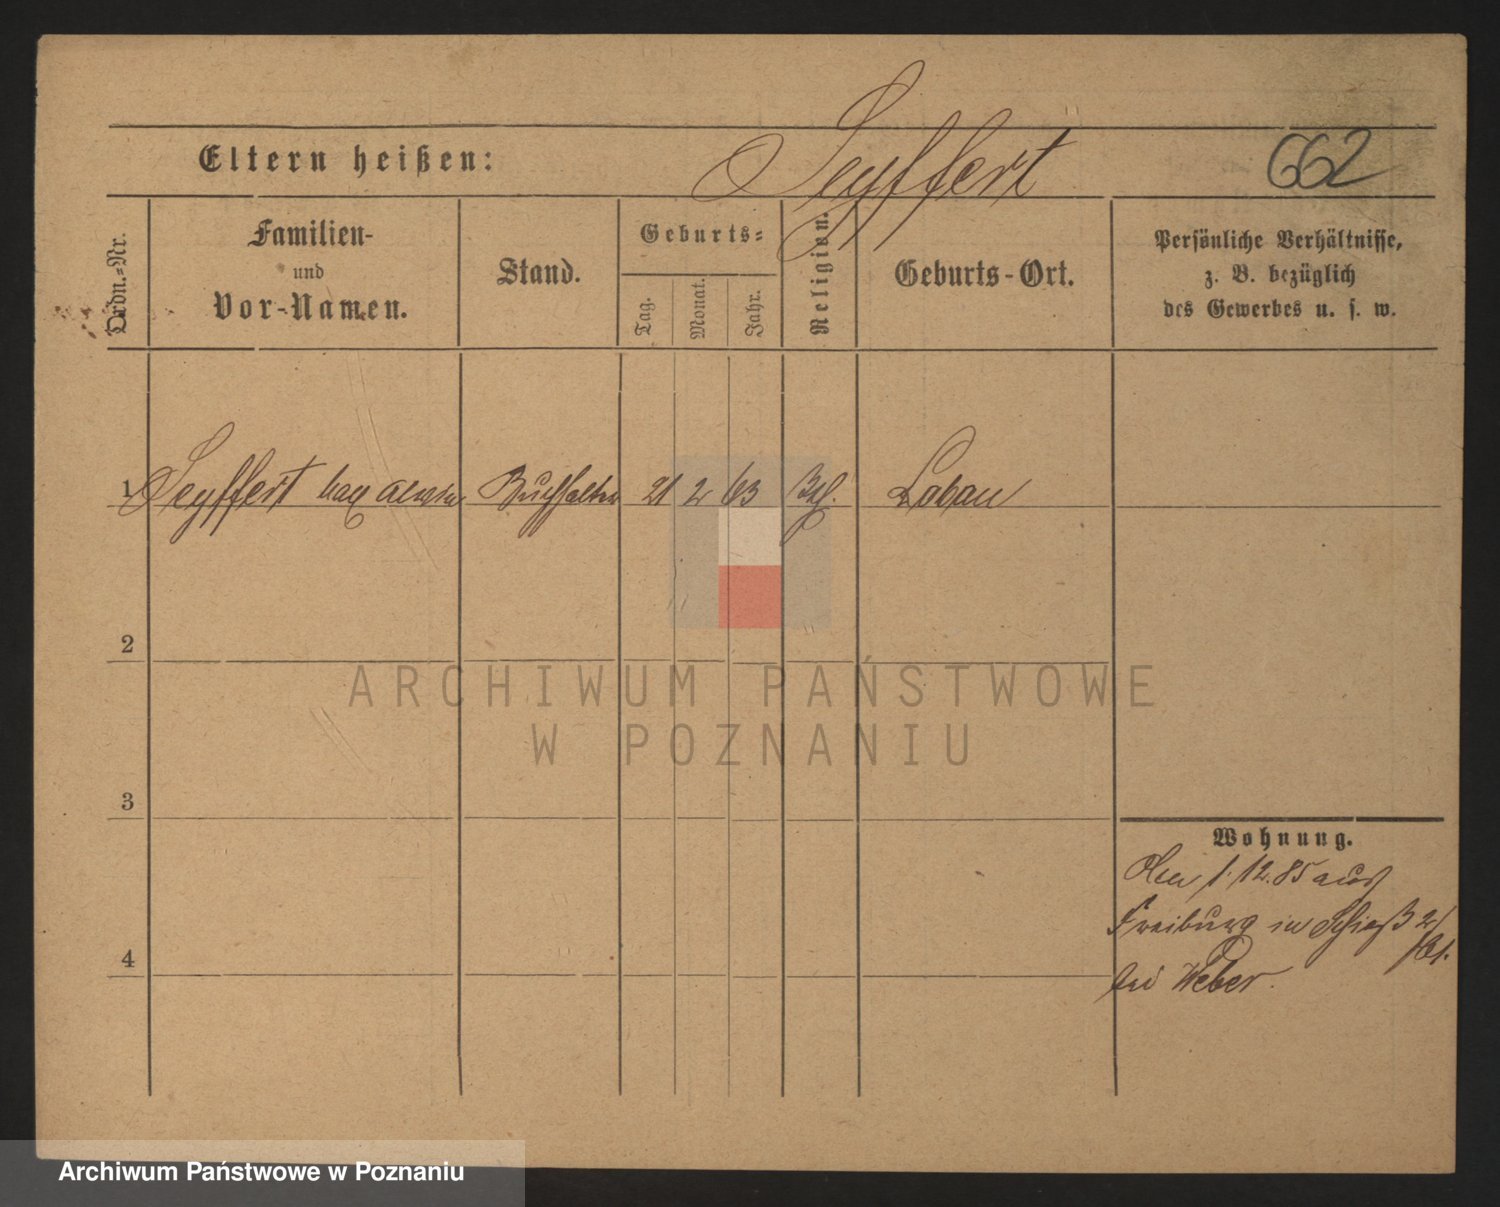 Eltern heißen: Seyffert 662
Ordn.-Nr.
Familien-
und
Vor-Namen.
Stand.
Geburts-
Tag.
Monat.
Jahr.
Religion.
Geburts-Ort.
Persönliche Verhältnisse,
z. B. bezüglich
des Gewerbes u. s. w.
1 Seyffert Max Buchhalter 21 2 63 Löbau
2
3
4
Wohnung.
1.12.85 aus
Freiburg in Schieß 2/
bei Weber.
ARCHIWUM PAŃSTWOWE
W POZNANIU
Archiwum Państwowe w Poznaniu